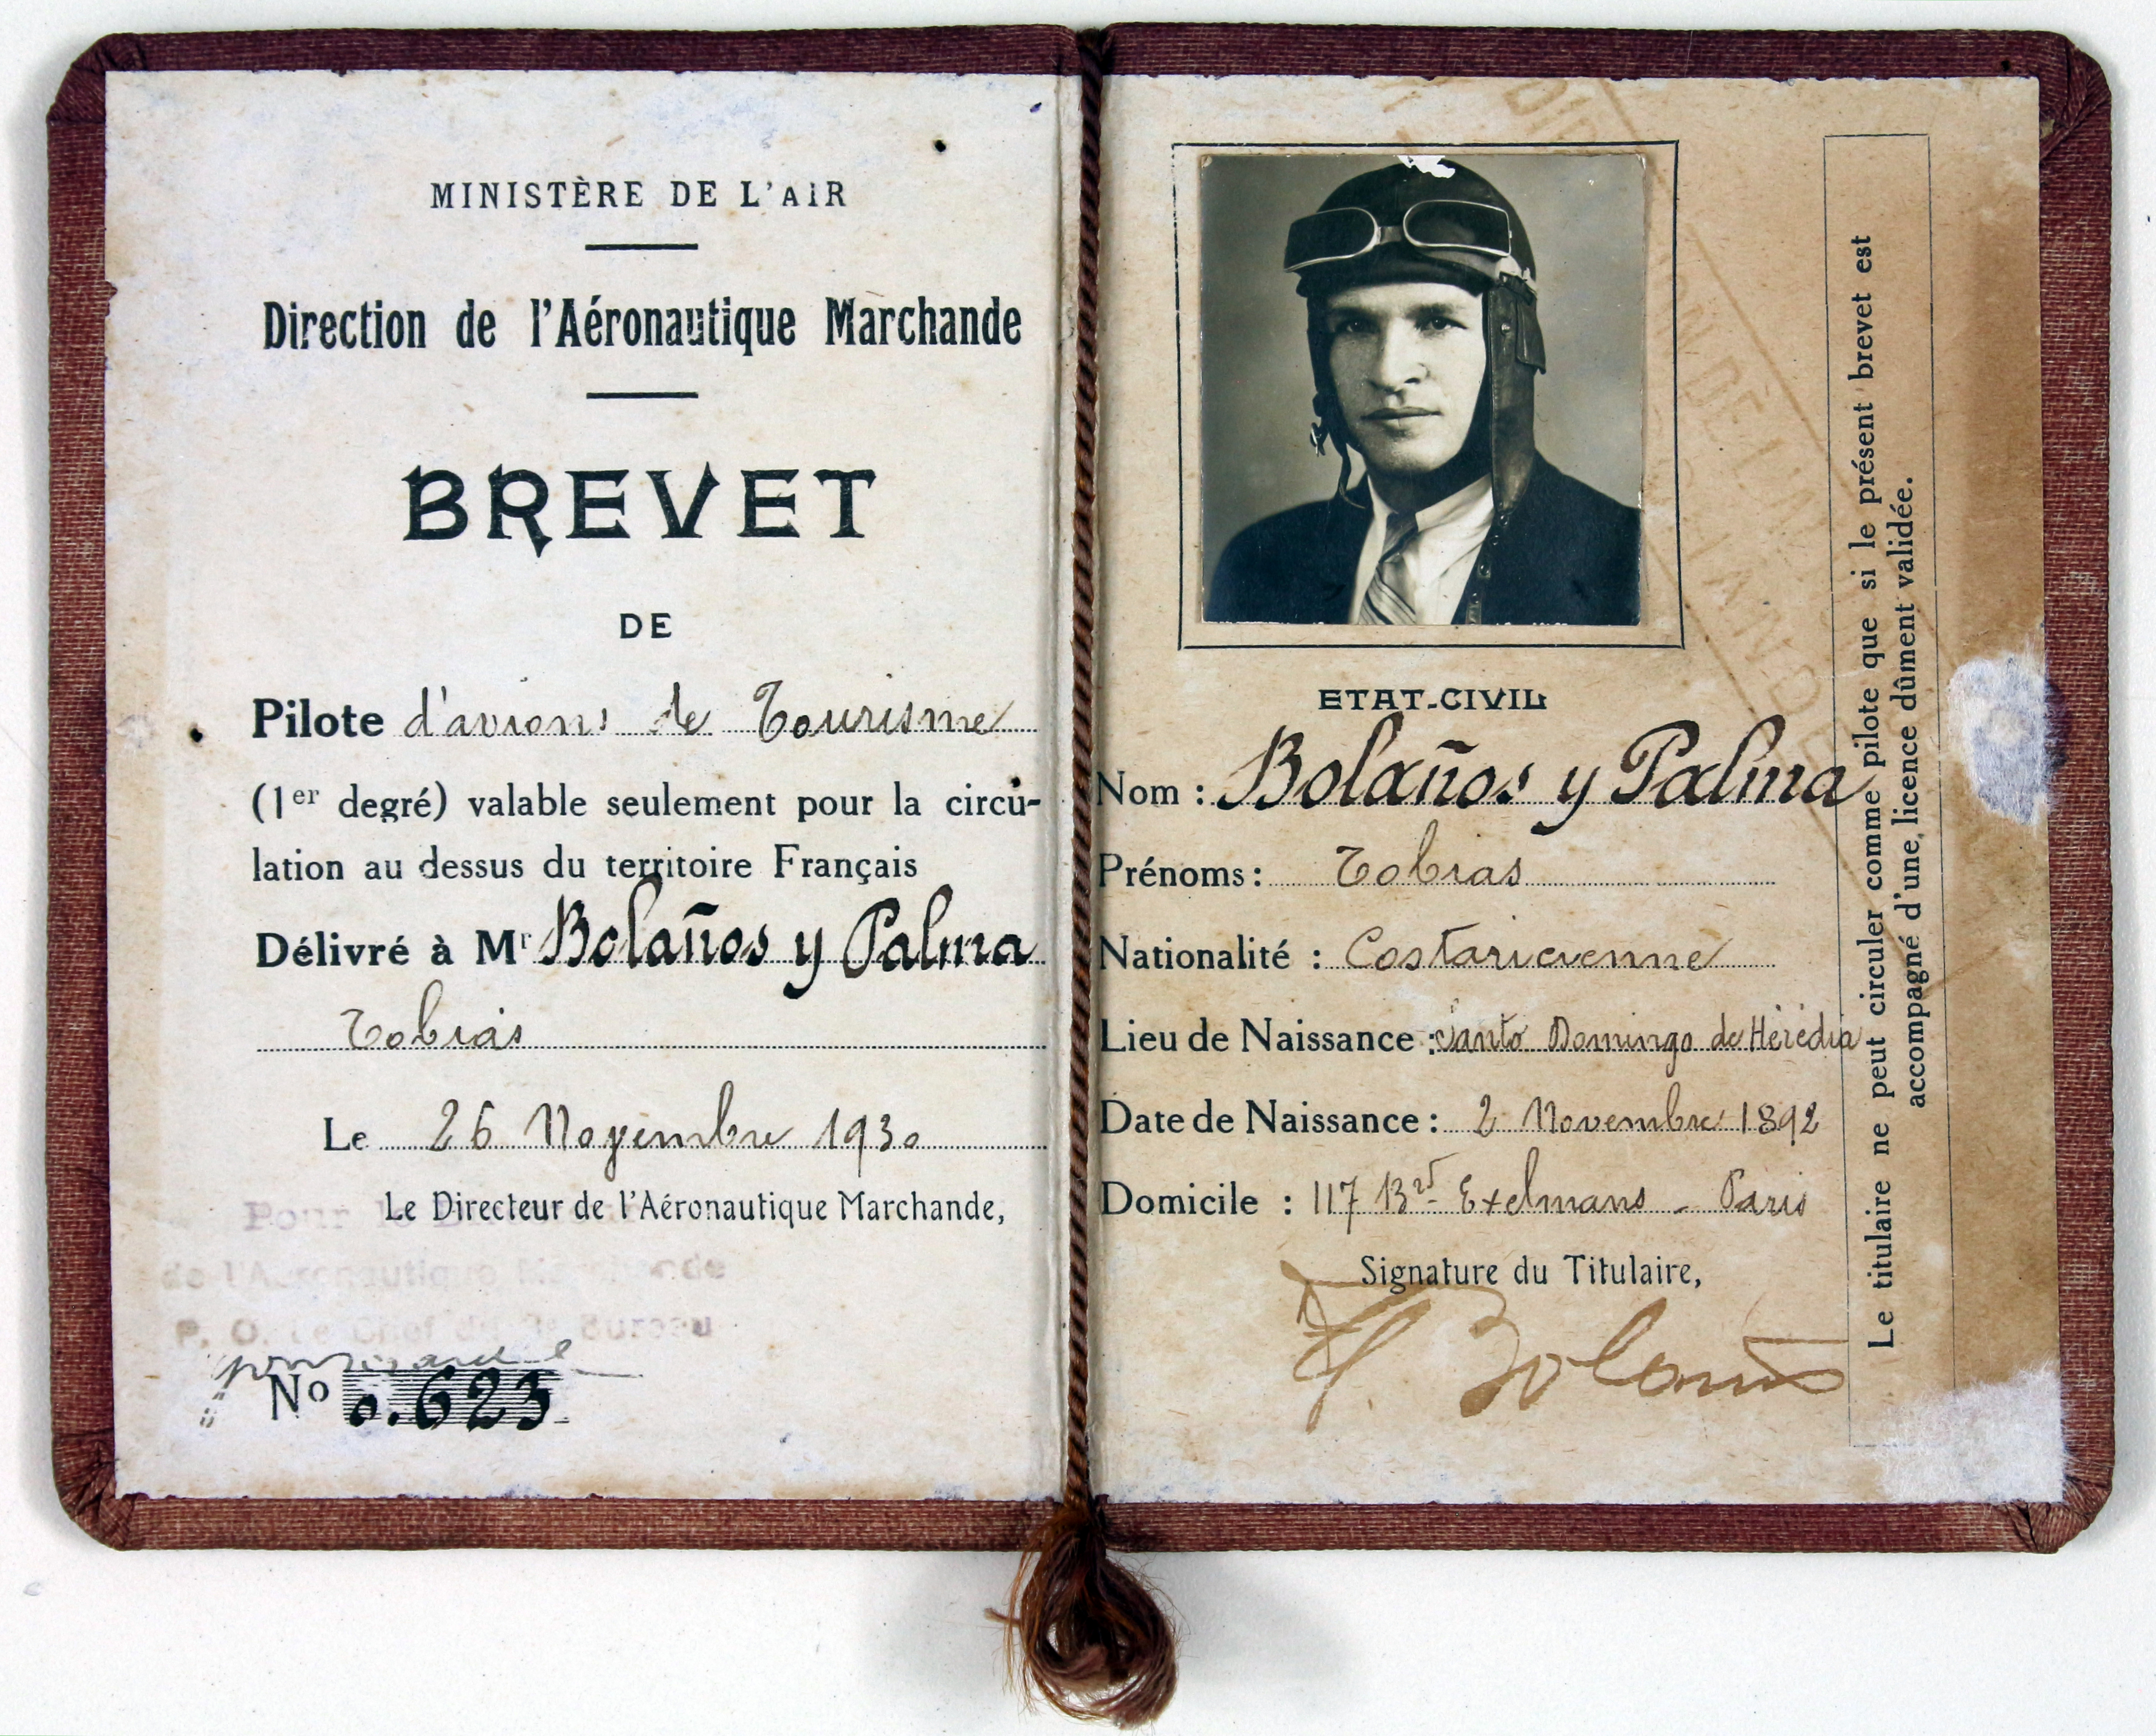 MINISTÈRE DE L'AIR
Direction de l'Aéronautique Marchande
BREVET
DE
Pilote d'avions de Tourisme
(1er degré) valable seulement pour la circu-
lation au dessus du territoire Français
Délivré à Mr Bolaños y Palma
Tobias
Le 26 Novembre 1930
Le Directeur de l'Aéronautique Marchande,
Pour
de l'Aéronautique Marchande
P. O. Le Chef du Bureau
No 0.623
ETAT-CIVIL
Nom : Bolaños y Palma
Prénoms : Tobias
Nationalité : Costaricienne
Lieu de Naissance : Santo Domingo de Hérédia
Date de Naissance : 2 Novembre 1892
Domicile : 117 Bd Exelmans - Paris
Signature du Titulaire,
T. Bolaños
Le titulaire ne peut circuler comme pilote que si le présent brevet est
accompagné d'une licence dûment validée.